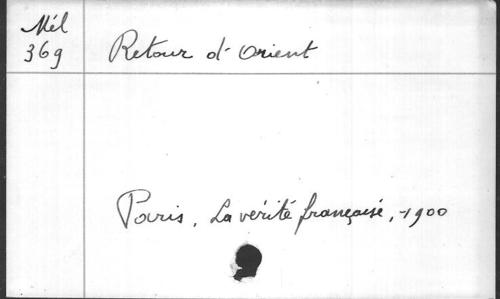 Mél
369
Retour d'Orient
Paris, La vérité française, 1900